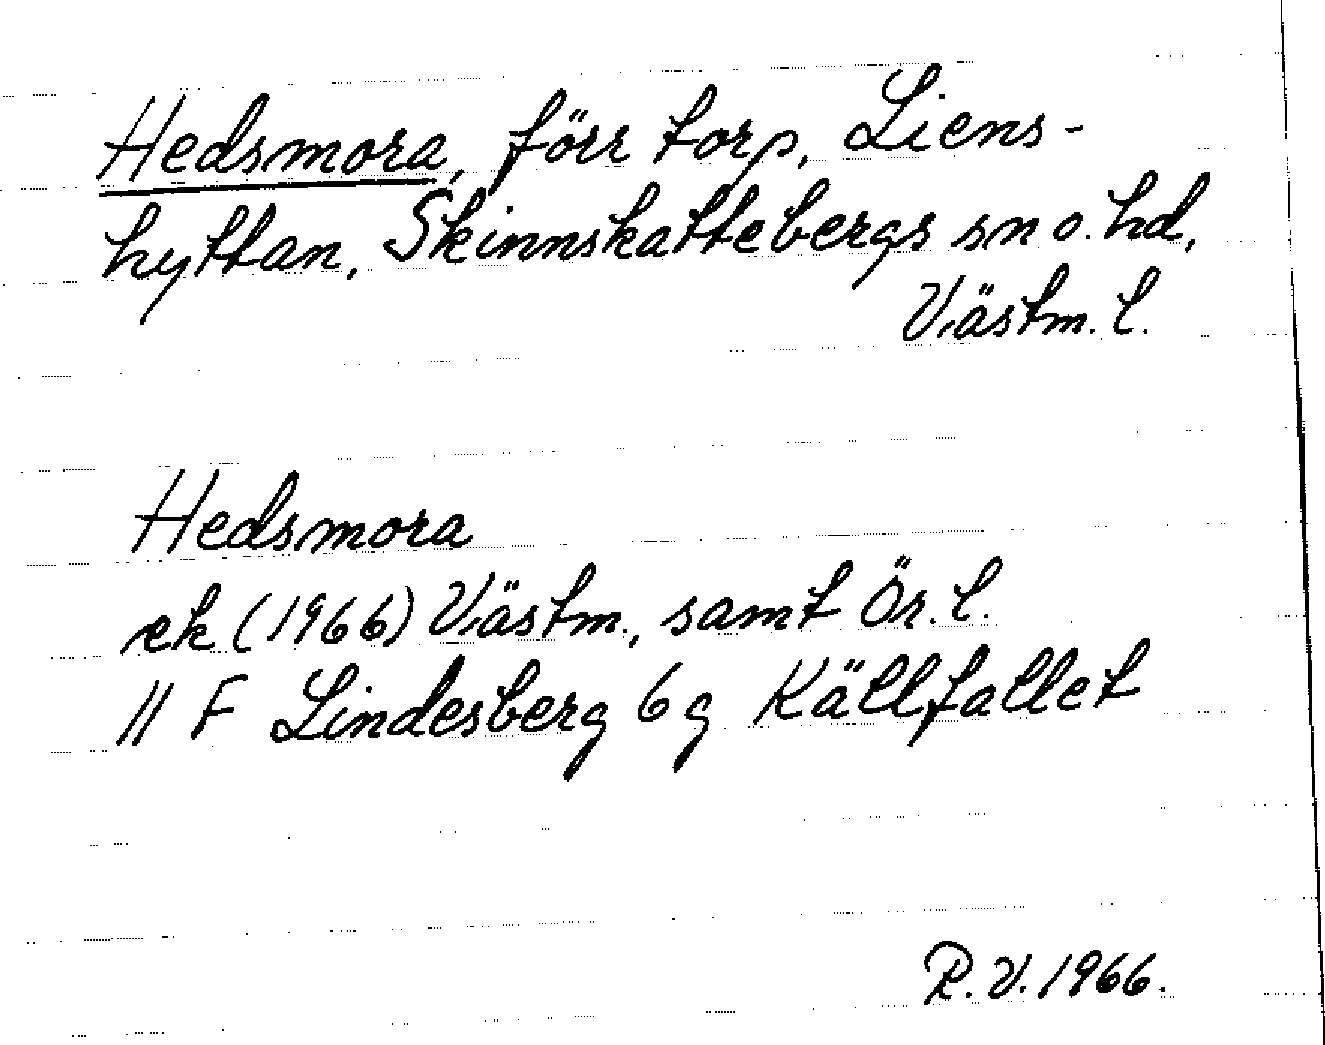 Hedsmora, förr torp, Liens-
hyttan, Skinnskattebergs sn o. hd,
Västm. l.
Hedsmora
ek (1966) Västm., samt Ör. l.
11 F Lindesberg 6 g Källfallet
R.V. 1966.